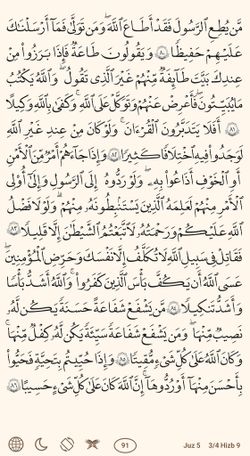 مَّن يُطِعِ ٱلرَّسُولَ فَقَدْ أَطَاعَ ٱللَّهَ ۖ وَمَن تَوَلَّىٰ فَمَآ أَرْسَلْنَـٰكَ
عَلَيْهِمْ حَفِيظًا ٨٠ وَيَقُولُونَ طَاعَةٌ فَإِذَا بَرَزُوا۟ مِنْ
عِندِكَ بَيَّتَ طَآئِفَةٌ مِّنْهُمْ غَيْرَ ٱلَّذِى تَقُولُ ۖ وَٱللَّهُ يَكْتُبُ
مَا يُبَيِّتُونَ ۖ فَأَعْرِضْ عَنْهُمْ وَتَوَكَّلْ عَلَى ٱللَّهِ ۚ وَكَفَىٰ بِٱللَّهِ وَكِيلًا
٨١ أَفَلَا يَتَدَبَّرُونَ ٱلْقُرْءَانَ ۚ وَلَوْ كَانَ مِنْ عِندِ غَيْرِ ٱللَّهِ
لَوَجَدُوا۟ فِيهِ ٱخْتِلَـٰفًا كَثِيرًا ٨٢ وَإِذَا جَآءَهُمْ أَمْرٌ مِّنَ ٱلْأَمْنِ
أَوِ ٱلْخَوْفِ أَذَاعُوا۟ بِهِۦ ۖ وَلَوْ رَدُّوهُ إِلَى ٱلرَّسُولِ وَإِلَىٰٓ أُو۟لِى
ٱلْأَمْرِ مِنْهُمْ لَعَلِمَهُ ٱلَّذِينَ يَسْتَنۢبِطُونَهُۥ مِنْهُمْ ۗ وَلَوْلَا فَضْلُ
ٱللَّهِ عَلَيْكُمْ وَرَحْمَتُهُۥ لَٱتَّبَعْتُمُ ٱلشَّيْطَـٰنَ إِلَّا قَلِيلًا ٨٣
فَقَـٰتِلْ فِى سَبِيلِ ٱللَّهِ لَا تُكَلَّفُ إِلَّا نَفْسَكَ ۚ وَحَرِّضِ ٱلْمُؤْمِنِينَ ۖ
عَسَى ٱللَّهُ أَن يَكُفَّ بَأْسَ ٱلَّذِينَ كَفَرُوا۟ ۚ وَٱللَّهُ أَشَدُّ بَأْسًا
وَأَشَدُّ تَنكِيلًا ٨٤ مَّن يَشْفَعْ شَفَـٰعَةً حَسَنَةً يَكُن لَّهُۥ
نَصِيبٌ مِّنْهَا ۖ وَمَن يَشْفَعْ شَفَـٰعَةً سَيِّئَةً يَكُن لَّهُۥ كِفْلٌ مِّنْهَا ۗ
وَكَانَ ٱللَّهُ عَلَىٰ كُلِّ شَىْءٍ مُّقِيتًا ٨٥ وَإِذَا حُيِّيتُم بِتَحِيَّةٍ فَحَيُّوا۟
بِأَحْسَنَ مِنْهَآ أَوْ رُدُّوهَآ ۗ إِنَّ ٱللَّهَ كَانَ عَلَىٰ كُلِّ شَىْءٍ حَسِيبًا ٨٦
91 Juz 5 3/4 Hizb 9